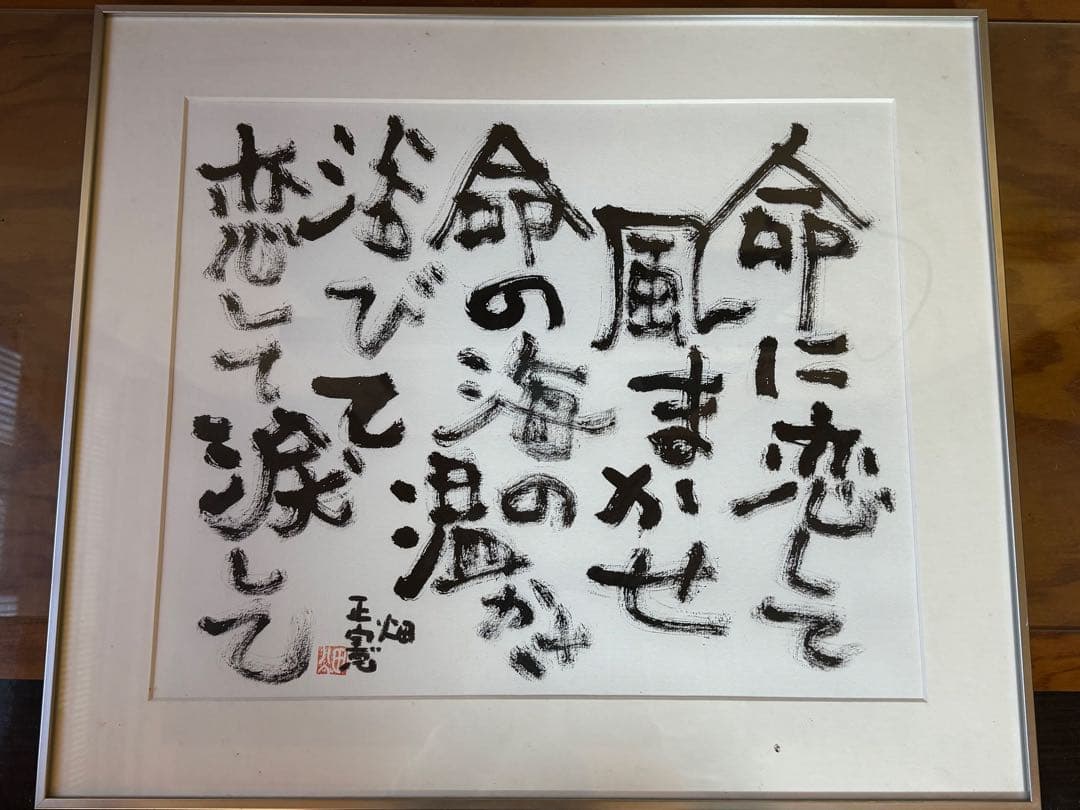 命に恋して
風まかせ
命の海の温かさ
浴びて
恋して涙して
畑
正憲